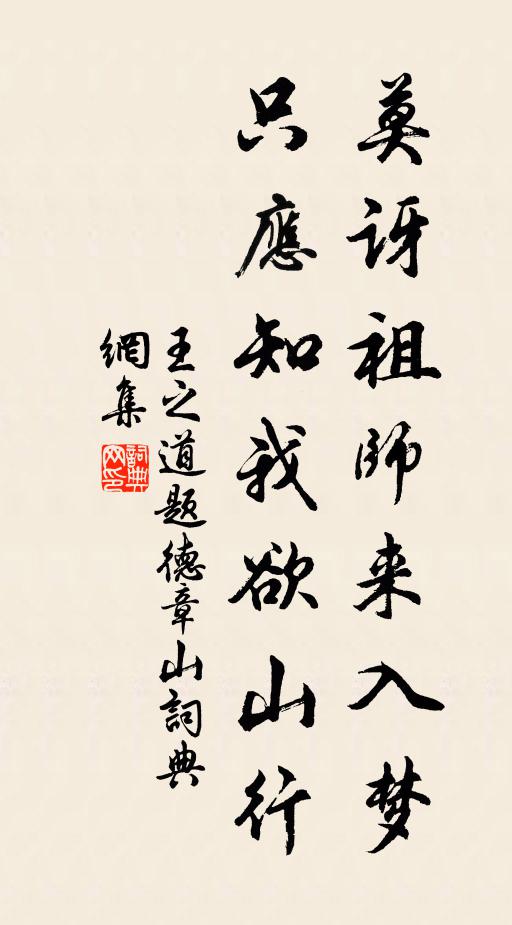 莫訝祖師来入梦
只應知我欲山行
王之道题德章山詞典
網集
詞典
网印